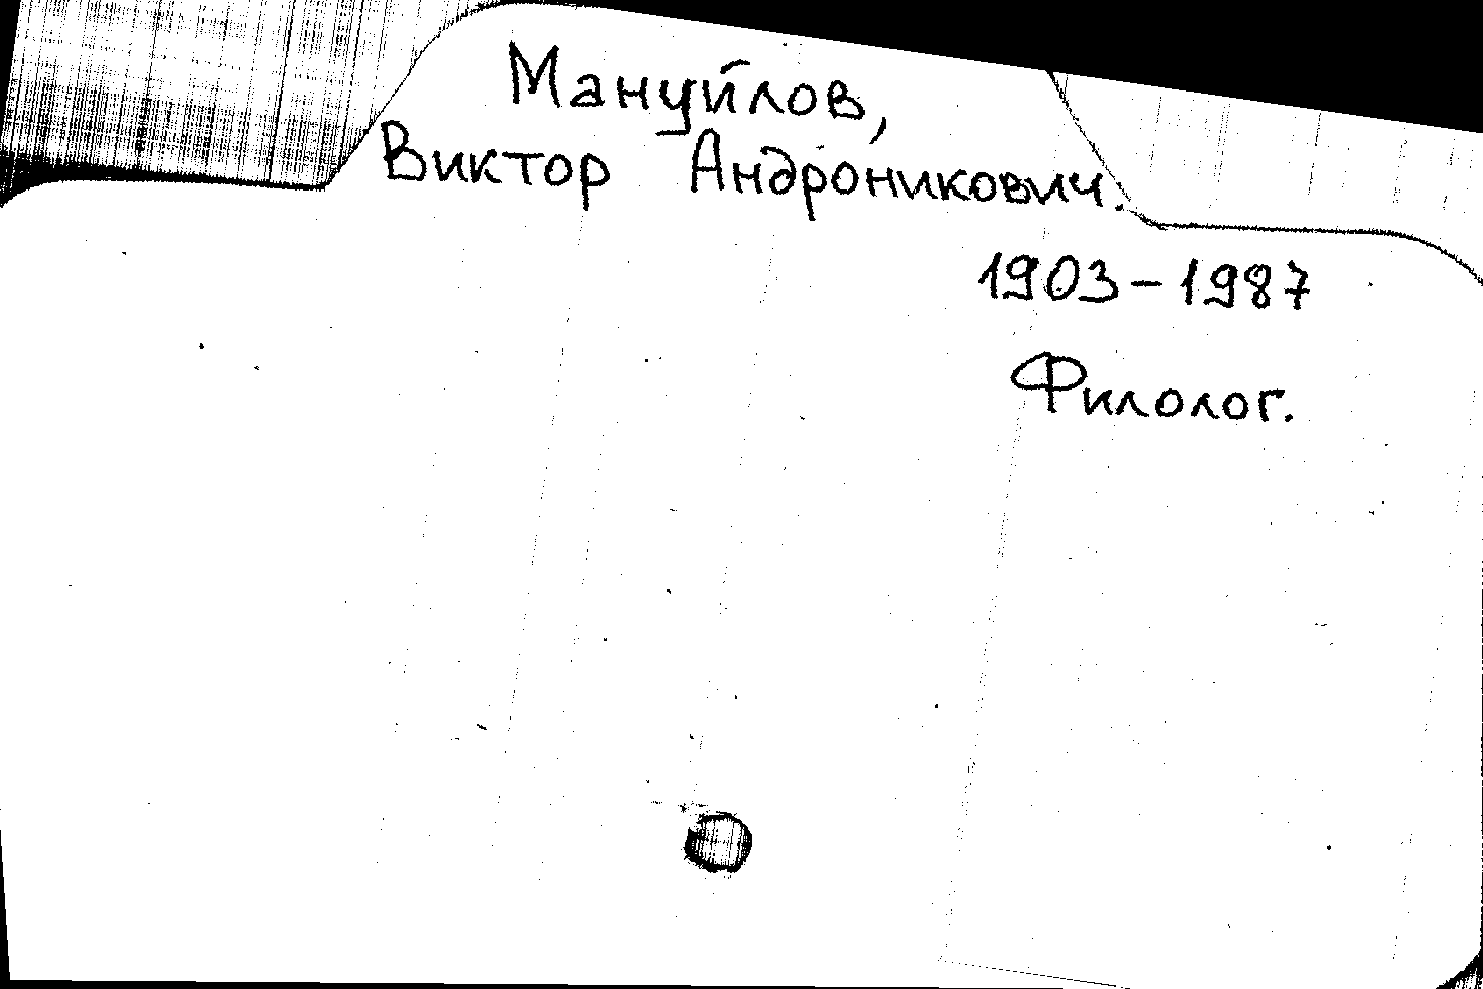 Мануйлов,
Виктор Андроникович.
1903-1987
Филолог.